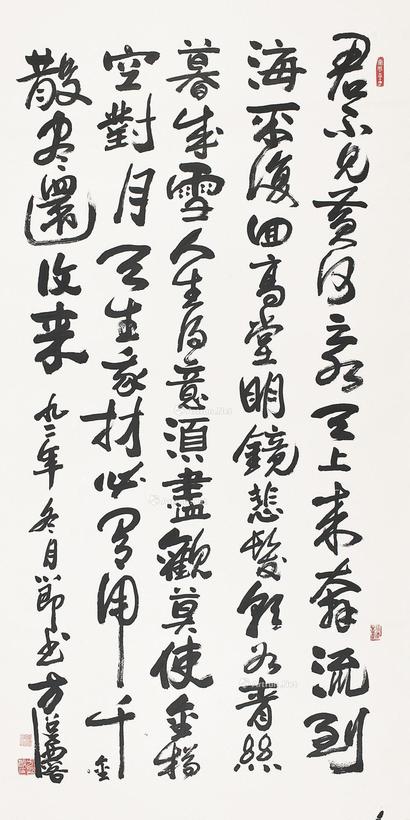 君不見黄河之水天上来奔流到
海不復回高堂明鏡悲髮朝如青絲
暮成雪人生得意須盡歡莫使金樽
空對月天生我材必有用千金
散尽還復来
九二年冬月節书方